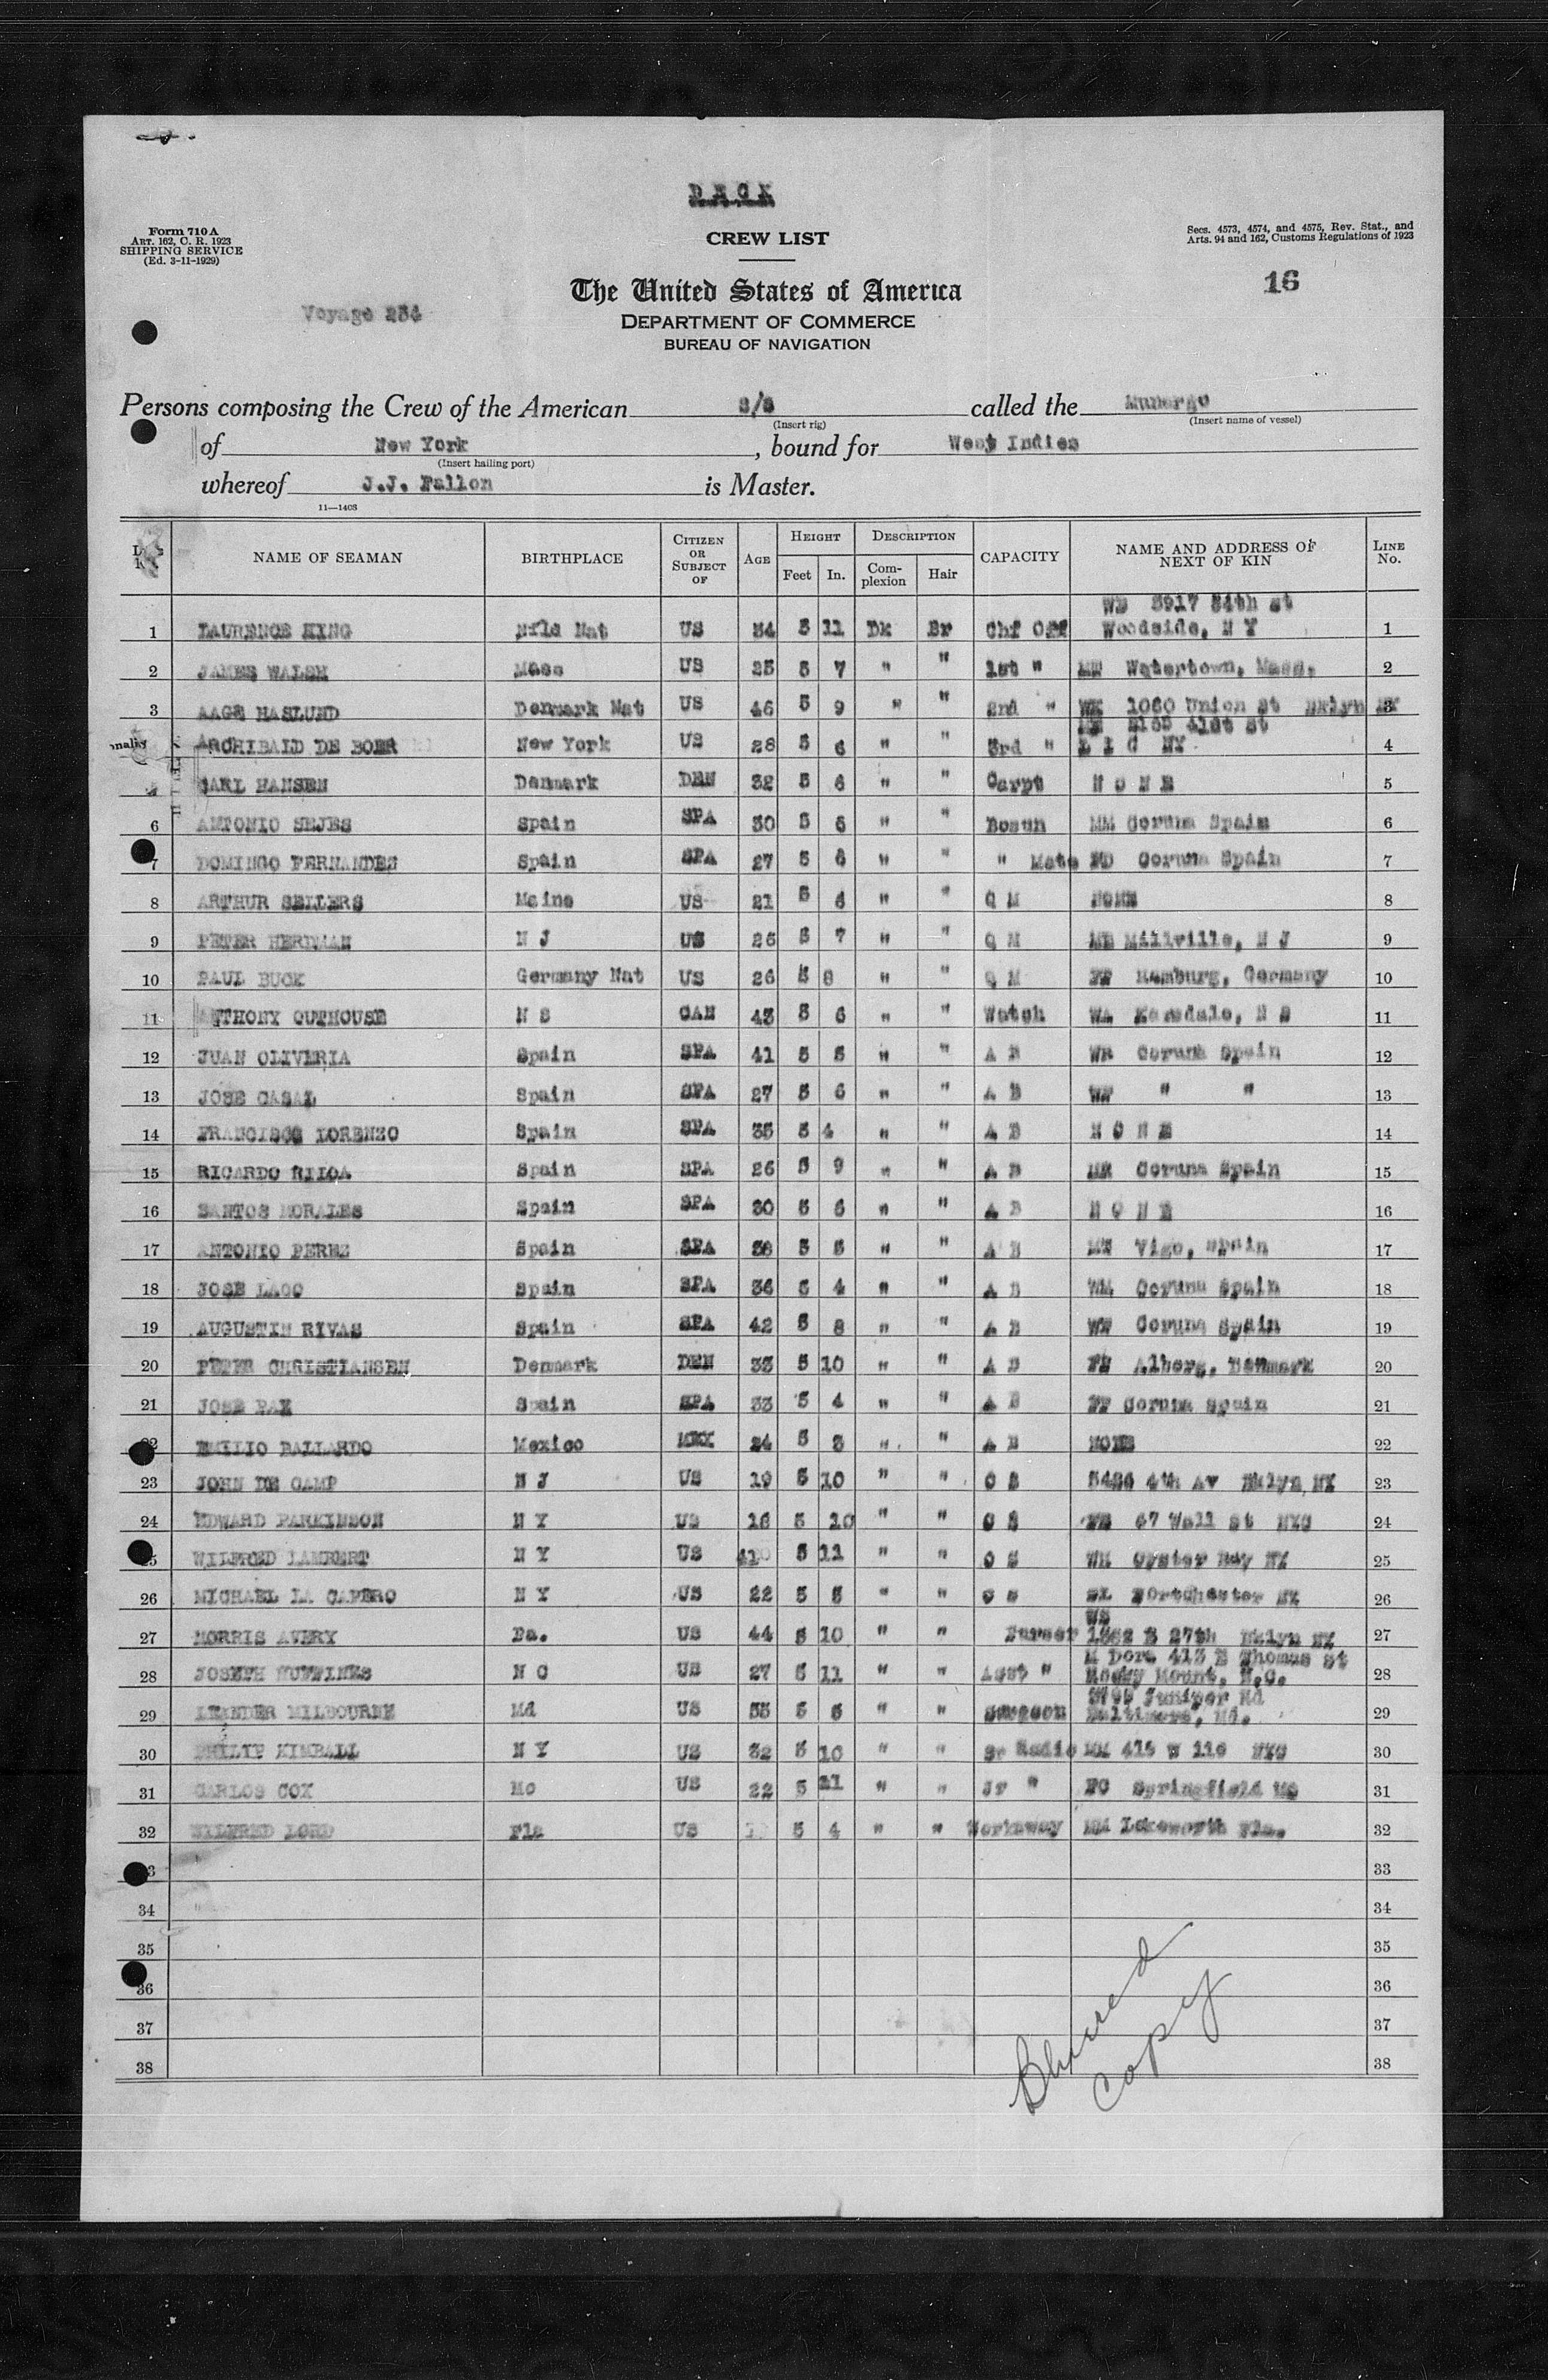 DECK
Form 710 A
ART. 162, C. R. 1923
SHIPPING SERVICE
(Ed. 3-11-1929)
CREW LIST
Secs. 4573, 4574, and 4575, Rev. Stat., and
Arts. 94 and 162, Customs Regulations of 1923
16
The United States of America
Voyage 234
DEPARTMENT OF COMMERCE
BUREAU OF NAVIGATION
Persons composing the Crew of the American s/s called the Munargo
(Insert rig) (Insert name of vessel)
of New York, bound for West Indies
(Insert hailing port)
whereof J.J. Fallon is Master.
11—1403
NAME OF SEAMAN BIRTHPLACE CITIZEN OR SUBJECT OF AGE HEIGHT Feet In. DESCRIPTION Complexion Hair CAPACITY NAME AND ADDRESS OF NEXT OF KIN LINE No.
WB 3917 54th st
1 LAURENCE KING Nfld Nat US 34 5 11 Dk Br Chf Off Woodside, N Y 1
2 JAMES WALSH Mass US 25 5 7 " " 1st " Watertown, Mass. 2
3 AAGE HASLUND Denmark Nat US 46 5 9 " " 2nd " WK 1080 Union st Bklyn NY 3
41st St
4 ARCHIBALD DE BOER New York US 28 5 6 " " 3rd " L I C NY 4
CARL HANSEN Denmark DEN 32 5 6 " " Carpt N O N E 5
6 ANTONIO SEJES Spain SPA 30 5 6 " " Bosun MM Coruna Spain 6
7 DOMINGO FERNANDES Spain SPA 27 5 6 " " " Mate FD Coruna Spain 7
8 ARTHUR SELLERS Maine US 21 5 6 " " Q M NONE 8
9 PETER HERDMAN N J US 26 5 7 " " Q M Millville, N J 9
10 PAUL BUCK Germany Nat US 26 5 8 " " Q M FF Hamburg, Germany 10
11 ANTHONY OUTHOUSE N S CAN 43 5 6 " " Watch WA N S 11
12 JUAN OLIVERIA Spain SPA 41 5 5 " " A B WR Coruna Spain 12
13 JOSE CASAL Spain SPA 27 5 6 " " A B " " 13
14 FRANCISCO LORENZO Spain SPA 35 5 4 " " A B N O N E 14
15 RICARDO RILOA Spain SPA 26 5 9 " " A B MR Coruna Spain 15
16 SANTOS MORALES Spain SPA 30 5 6 " " A B N O N E 16
17 ANTONIO PEREZ Spain SPA 38 5 5 " " A B Vigo, Spain 17
18 JOSE LAGO Spain SPA 36 5 4 " " A B WM Coruna Spain 18
19 AUGUSTIN RIVAS Spain SPA 42 5 8 " " A B Coruna Spain 19
20 PETER CHRISTIANSEN Denmark DEN 33 5 10 " " A B Alborg, Denmark 20
21 JOSE PAZ Spain SPA 33 5 4 " " A B FF Coruna Spain 21
22 EMILIO BALLARDO Mexico MEX 24 5 3 " " A B NONE 22
23 JOHN DE CAMP N J US 19 5 10 " " O S 5426 4th Av Bklyn, NY 23
24 EDWARD PARKINSON N Y US 18 5 10 " " O S 67 Wall st NYC 24
25 WILFRED LAMBERT N Y US 5 11 " " O S Oyster Bay NY 25
26 MICHAEL LA CAPERO N Y US 22 5 5 " " O S Portchester NY 26
WS
27 MORRIS AVERY Pa. US 44 5 10 " " Purser 1562 E 27th Bklyn NY 27
M Dora 413 E Thomas St
28 JOSEPH HUFFINES N C US 27 5 11 " " Asst " Rocky Mount, N.C. 28
Juniper Rd
29 LEANDER MILBOURNE Md US 55 5 5 " " Surgeon Baltimore, Md. 29
30 PHILIP KIMBALL N Y US 32 5 10 " " Sr Radio MM 415 W 110 NYC 30
31 CARLOS COX Mo US 22 5 11 " " Jr " FC Springfield Mo 31
32 WILFRED LORD Fla US 5 4 " " Workaway MM Lakeworth Fla. 32
33
34 34
35 35
36 36
37 37
38 38
Blurred
copy